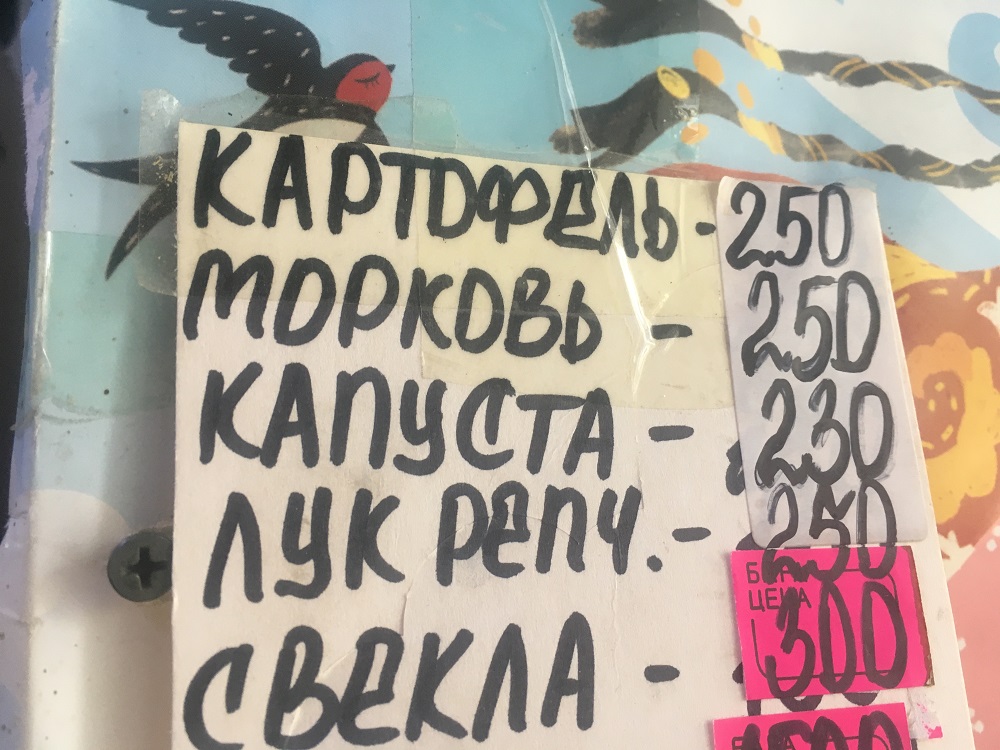 КАРТОФЕЛЬ - 250
МОРКОВЬ - 250
КАПУСТА - 230
ЛУК РЕПЧ. - 250
ЦЕНА
СВЕКЛА - 300